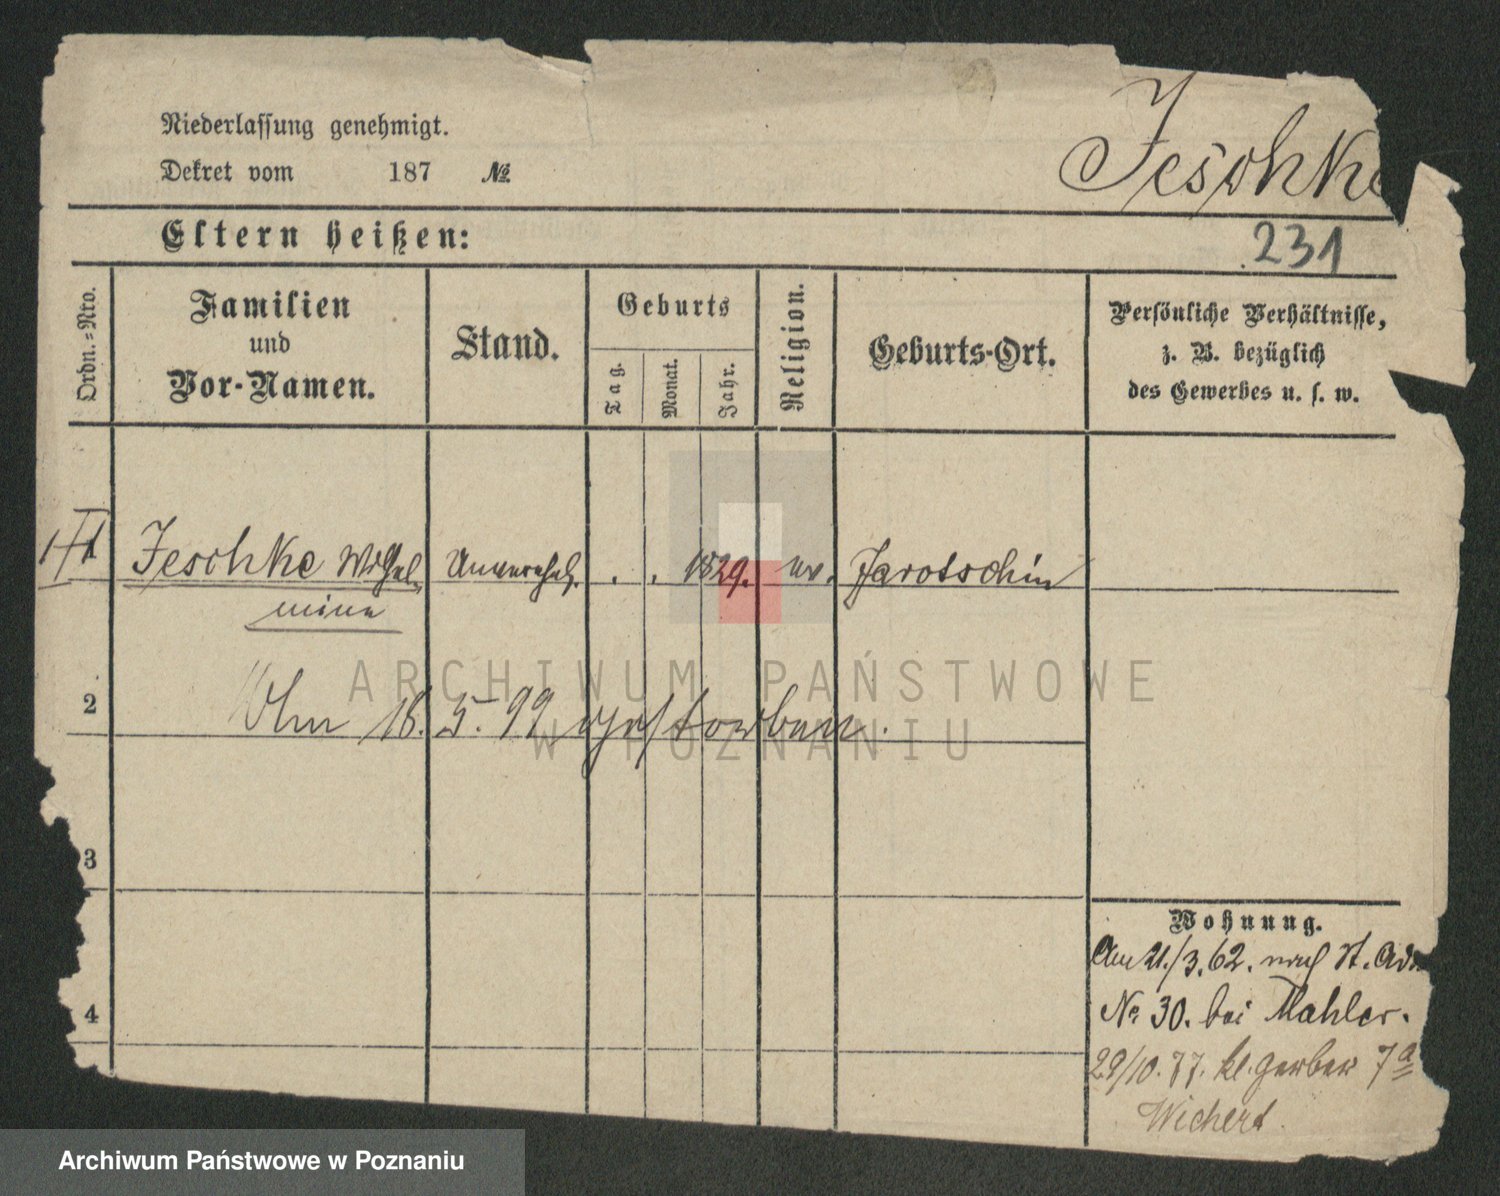 Niederlassung genehmigt.
Dekret vom 187 №
Jeschke
Eltern heißen:
231
Ordn.=Nro.
Familien
und
Vor-Namen.
Stand.
Geburts
Tag.
Monat.
Jahr.
Religion.
Geburts-Ort.
Persönliche Verhältnisse,
z. B. bezüglich
des Gewerbes u. s. w.
1 Jeschke Wilhel- Unverehel. . . 1829. ev. Jarotschin
mine
2 Am 18. 5. 99 gestorben.
3
4
Wohnung.
Am 21./3. 62. nach St. Ad
No 30. bei Mahler.
29/10. 77. kl. Gerber 7a
Wichert.
ARCHIWUM PAŃSTWOWE
W POZNANIU
Archiwum Państwowe w Poznaniu